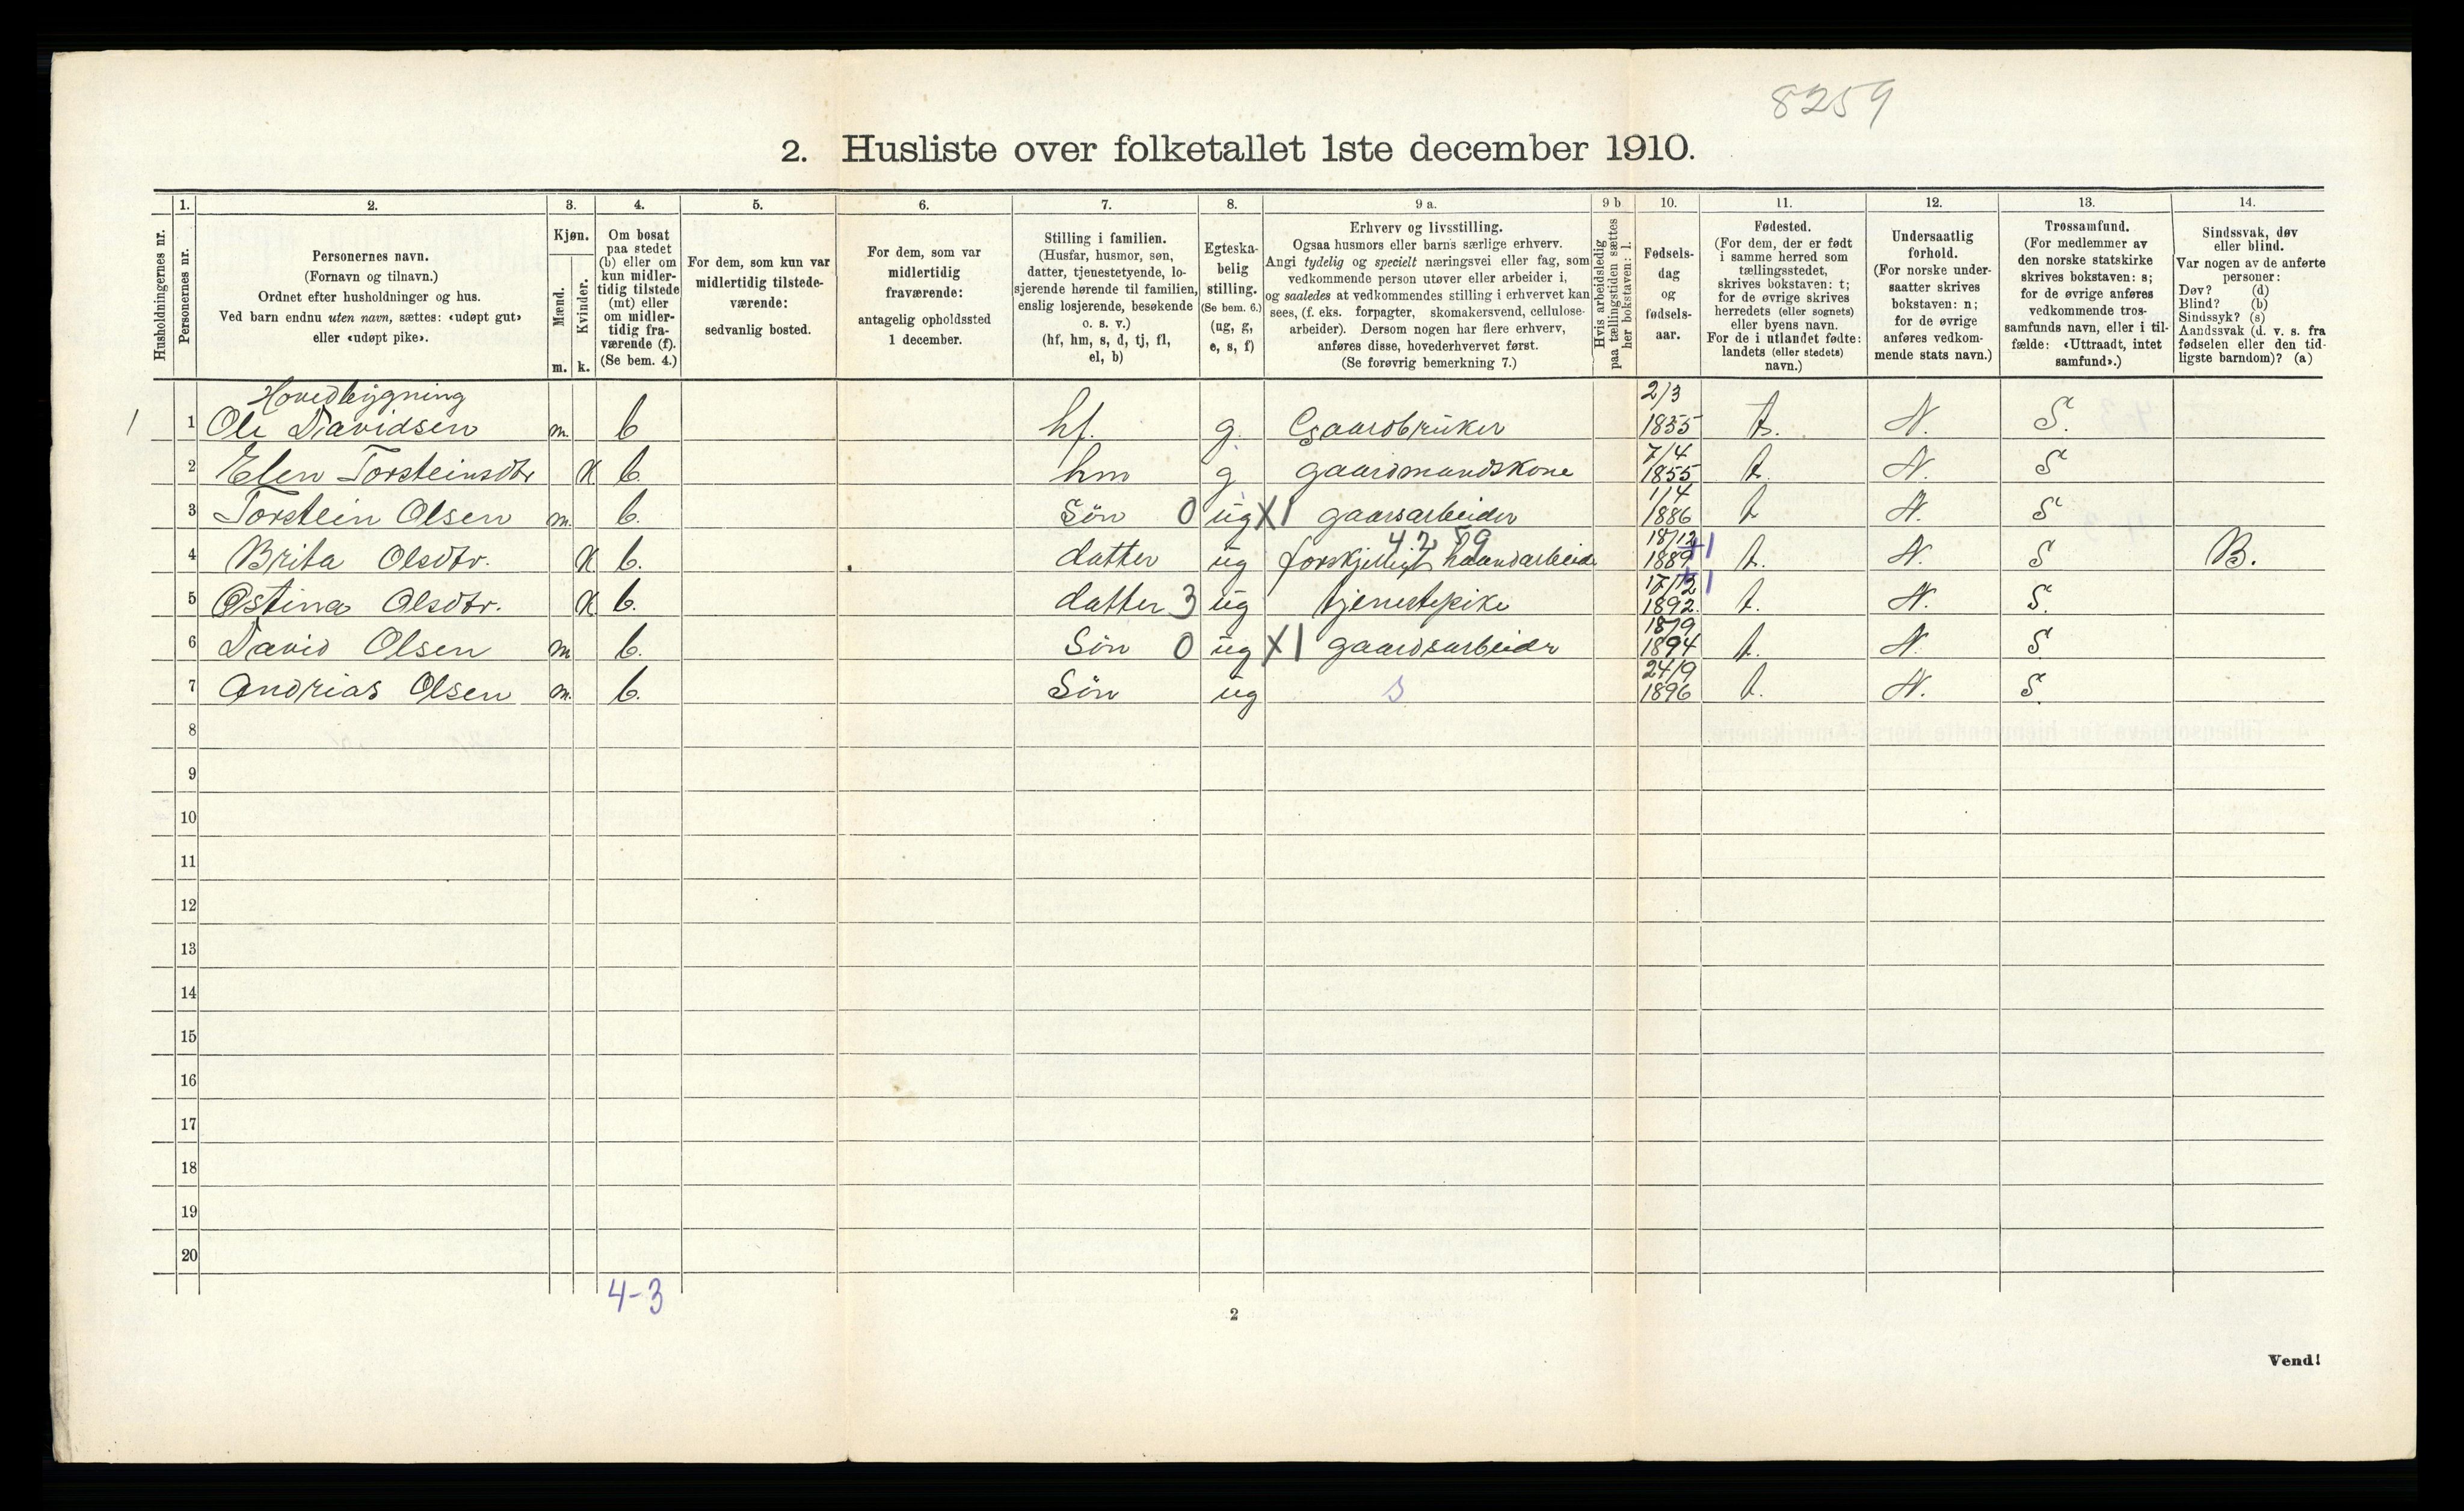 8259
2. Husliste over folketallet 1ste december 1910.
1. 2. 3. 4. 5. 6. 7. 8. 9 a. 9 b 10. 11. 12. 13. 14.
Husholdningernes nr.
Personernes nr.
Personernes navn.
(Fornavn og tilnavn.)
Ordnet efter husholdninger og hus.
Ved barn endnu uten navn, sættes: «udøpt gut»
eller «udøpt pike».
Kjøn.
Mænd.
Kvinder.
m. k.
Om bosat
paa stedet
(b) eller om
kun midler-
tidig tilstede
(mt) eller
om midler-
tidig fra-
værende (f).
(Se bem. 4.)
For dem, som kun var
midlertidig tilstede-
værende:
sedvanlig bosted.
For dem, som var
midlertidig
fraværende:
antagelig opholdssted
1 december.
Stilling i familien.
(Husfar, husmor, søn,
datter, tjenestetyende, lo-
sjerende hørende til familien,
enslig losjerende, besøkende
o. s. v.)
(hf, hm, s, d, tj, fl,
el, b)
Egteska-
belig
stilling.
(Se bem. 6.)
(ug, g,
e, s, f)
Erhverv og livsstilling.
Ogsaa husmors eller barns særlige erhverv.
Angi tydelig og specielt næringsvei eller fag, som
vedkommende person utøver eller arbeider i,
og saaledes at vedkommendes stilling i erhvervet kan
sees, (f. eks. forpagter, skomakersvend, cellulose-
arbeider). Dersom nogen har flere erhverv,
anføres disse, hovederhvervet først.
(Se forøvrig bemerkning 7.)
Hvis arbeidsledig
paa tællingstiden sættes
her bokstaven: l.
Fødsels-
dag
og
fødsels-
aar.
Fødested.
(For dem, der er født
i samme herred som
tællingsstedet,
skrives bokstaven: t;
for de øvrige skrives
herredets (eller sognets)
eller byens navn.
For de i utlandet fødte:
landets (eller stedets)
navn.)
Undersaatlig
forhold.
(For norske under-
saatter skrives
bokstaven: n;
for de øvrige
anføres vedkom-
mende stats navn.)
Trossamfund.
(For medlemmer av
den norske statskirke
skrives bokstaven: s;
for de øvrige anføres
vedkommende tros-
samfunds navn, eller i til-
fælde: «Uttraadt, intet
samfund».)
Sindssvak, døv
eller blind.
Var nogen av de anførte
personer:
Døv? (d)
Blind? (b)
Sindssyk? (s)
Aandssvak (d. v. s. fra
fødselen eller den tid-
ligste barndom)? (a)
Hovedbygning 2/3
1 1 Ole Davidsen m. b hf. g. Gaardbruker 1855 t. N. S.
2 Elen Torsteinsdtr K b. hm g gaardmandskone 7/4 1855 t. N. S
3 Torstein Olsen m. b. Søn 0 ug X1 gaarsarbeider 1/4 1886 t N. S
4 Brita Olsdtr. K b. datter ug forskjelligt haandarbeide 18/12 1889 +1 t. N. S B.
5 Ostina Olsdtr. K b. datter 3 ug tjenestepike 17/12 1892. +1 t. N. S.
6 David Olsen m b. Søn 0 ug X1 gaardsarbeidr 18/9 1894 t. N. S
7 Andrias Olsen m. b. Søn ug s 24/9 1896 t. N. S.
8
9
10
11
12
13
14
15
16
17
18
19
20
4-3
2
Vend!